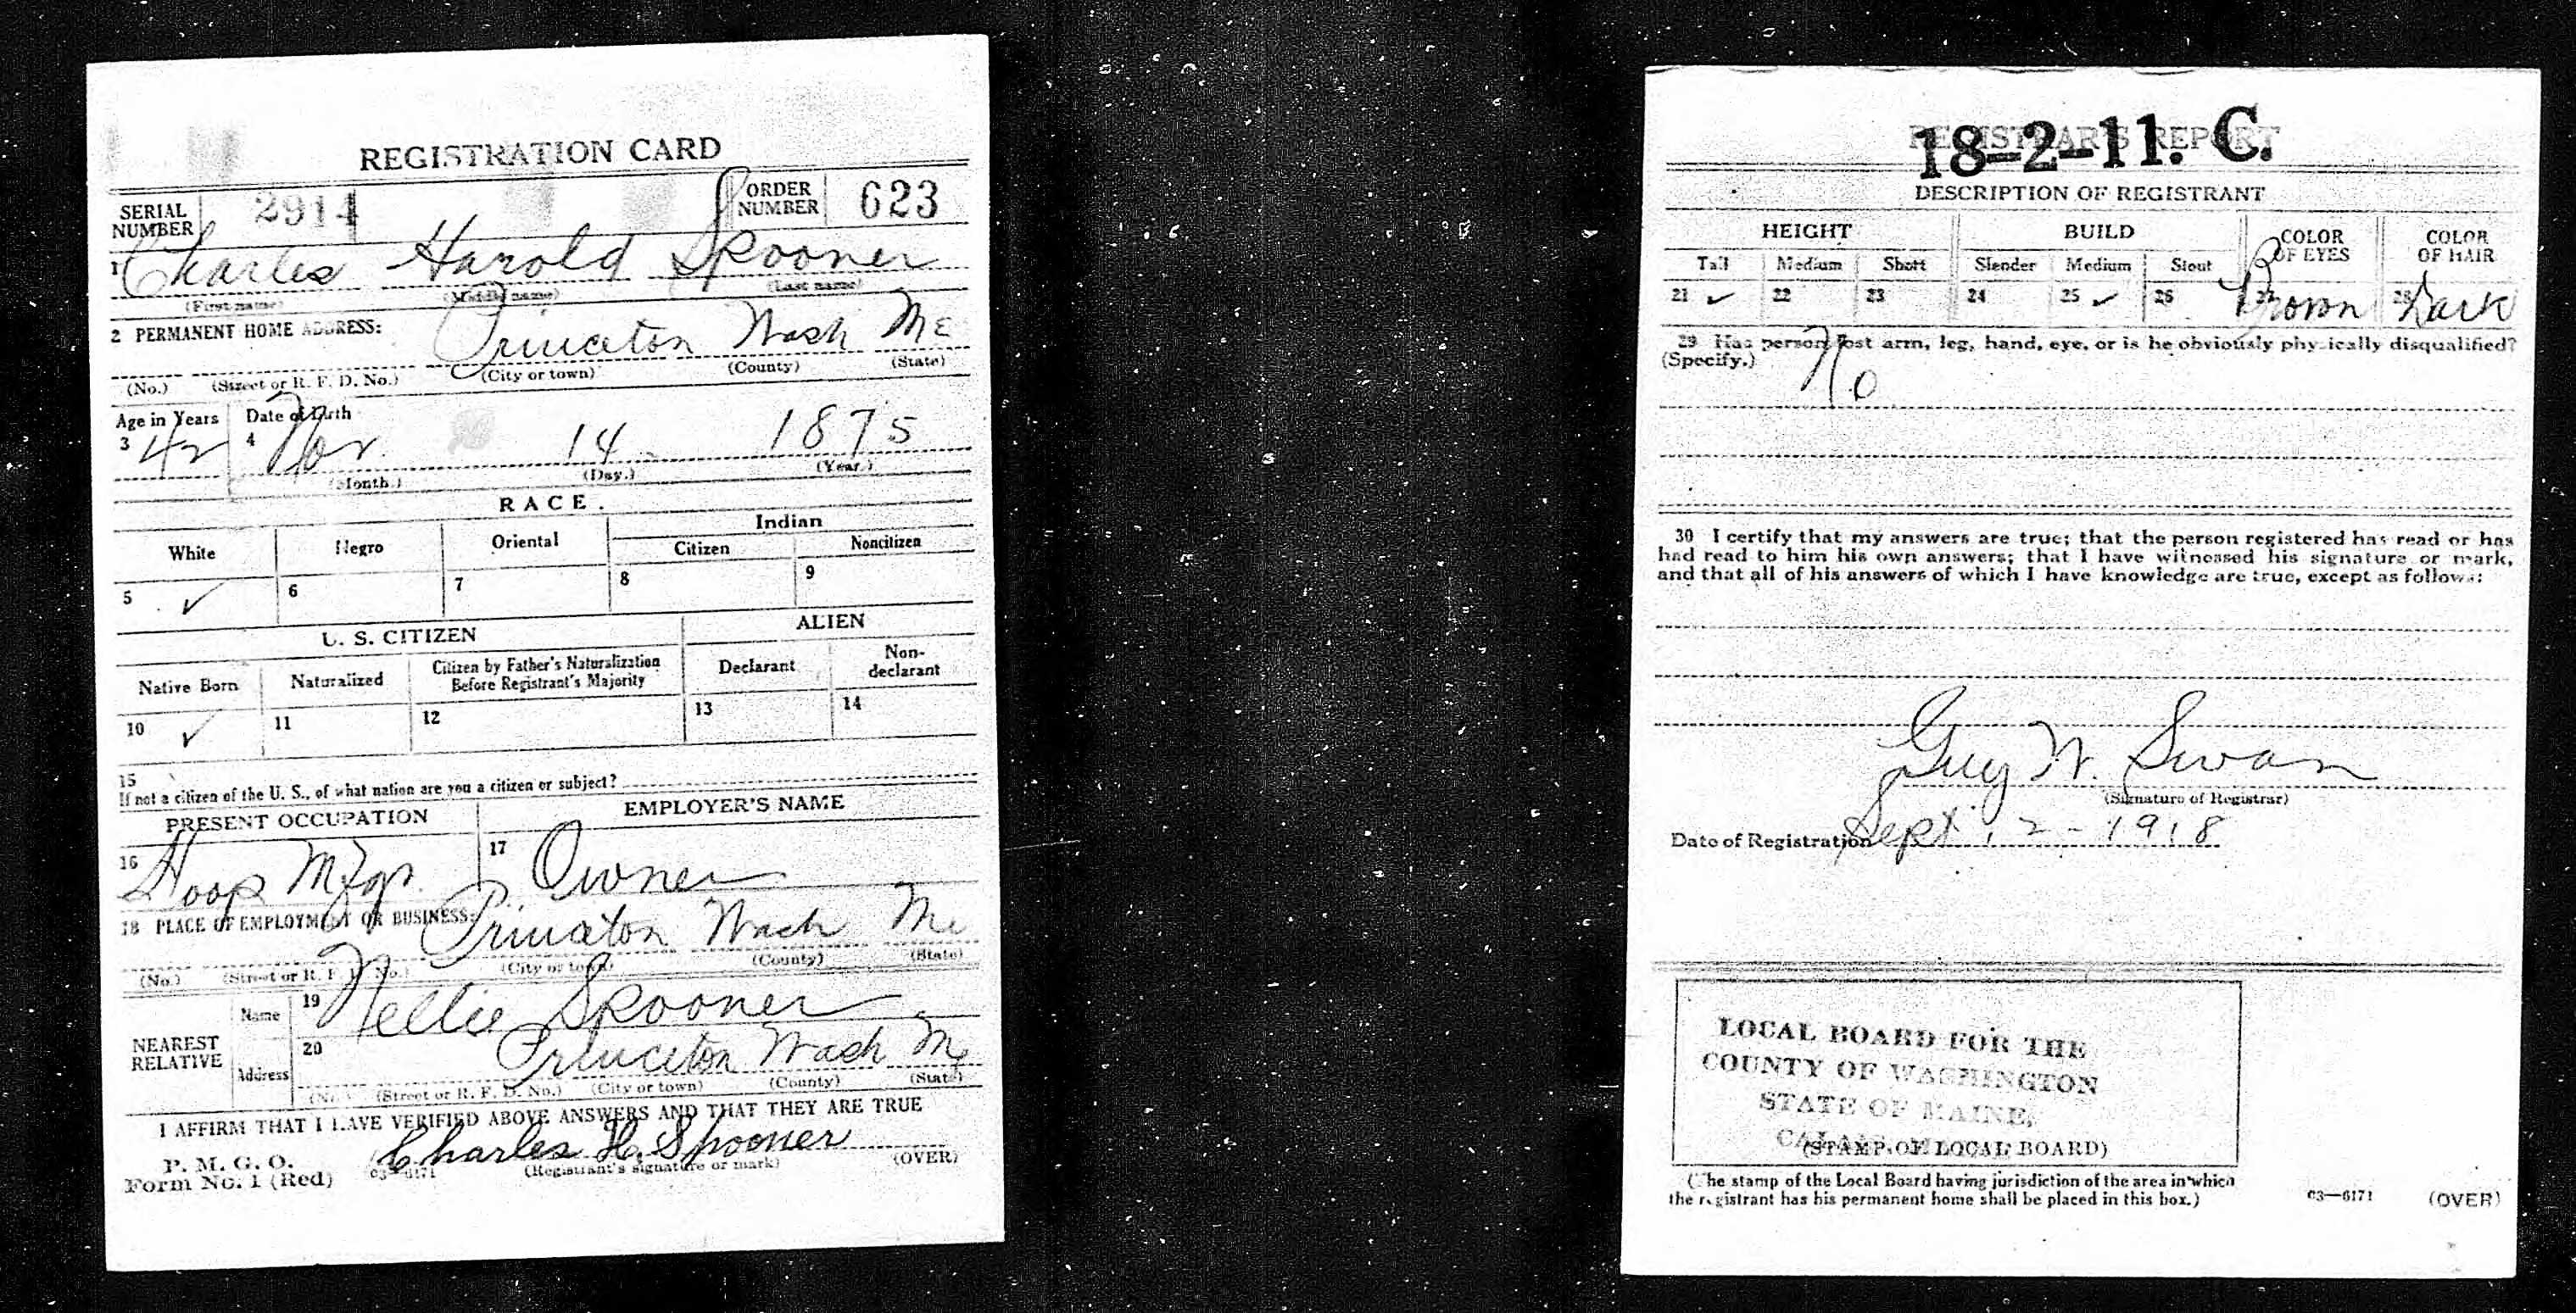 REGISTRATION CARD
SERIAL NUMBER 2914 ORDER NUMBER 623
1 Charles Harold Spooner
(First name) (Middle name) (Last name)
2 PERMANENT HOME ADDRESS: Princeton Wash Me
(No.) (Street or R. F. D. No.) (City or town) (County) (State)
Age in Years Date of Birth
3 42 4 Nov. 14 1875
(Month.) (Day.) (Year.)
RACE.
White Negro Oriental Indian
Citizen Noncitizen
5 ✓ 6 7 8 9
U. S. CITIZEN ALIEN
Native Born Naturalized Citizen by Father's Naturalization Before Registrant's Majority Declarant Non-declarant
10 ✓ 11 12 13 14
15
If not a citizen of the U. S., of what nation are you a citizen or subject?
PRESENT OCCUPATION EMPLOYER'S NAME
16 Hoop Mfgr. 17 Owner
18 PLACE OF EMPLOYMENT OR BUSINESS: Princeton Wash Me
(No.) (Street or R. F. D. No.) (City or town) (County) (State)
NEAREST RELATIVE
Name 19 Nellie Spooner
Address 20 Princeton Wash Me
(No.) (Street or R. F. D. No.) (City or town) (County) (State)
I AFFIRM THAT I HAVE VERIFIED ABOVE ANSWERS AND THAT THEY ARE TRUE
P. M. G. O.
Form No. 1 (Red) 03—6171 Charles H. Spooner
(Registrant's signature or mark) (OVER)
REGISTRAR'S REPORT
18-2-11. C.
DESCRIPTION OF REGISTRANT
HEIGHT BUILD COLOR OF EYES COLOR OF HAIR
Tall Medium Short Slender Medium Stout
21 ✓ 22 23 24 25 ✓ 26 27 Brown 28 Dark
29 Has person lost arm, leg, hand, eye, or is he obviously physically disqualified?
(Specify.) No
30 I certify that my answers are true; that the person registered has read or has
had read to him his own answers; that I have witnessed his signature or mark,
and that all of his answers of which I have knowledge are true, except as follows:
Guy W. Swan
(Signature of Registrar)
Date of Registration Sept. 12-1918
LOCAL BOARD FOR THE
COUNTY OF WASHINGTON
STATE OF MAINE,
CALAIS,
(STAMP OF LOCAL BOARD)
(The stamp of the Local Board having jurisdiction of the area in which
the registrant has his permanent home shall be placed in this box.)
03—6171 (OVER)